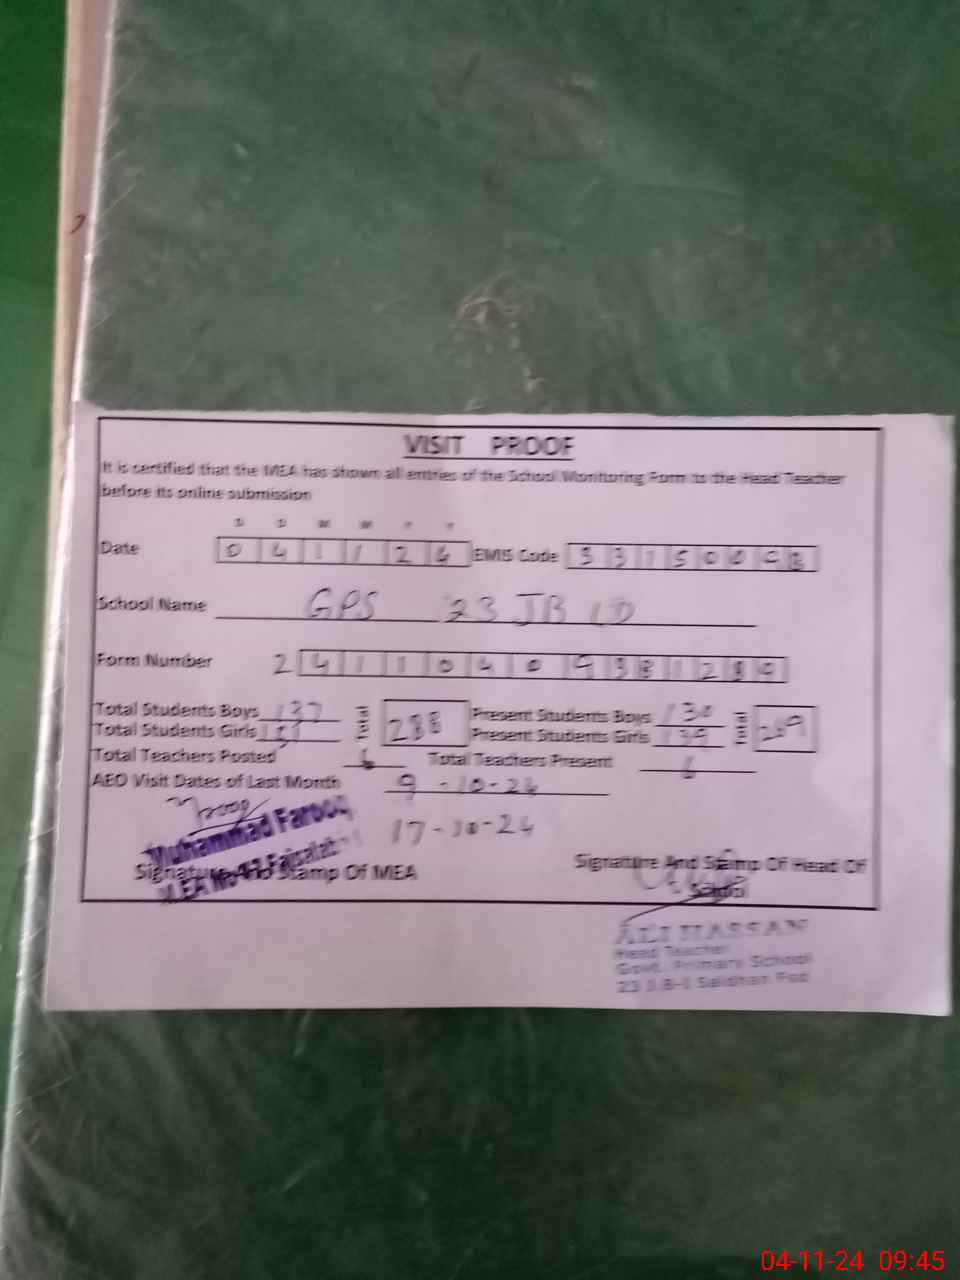 VISIT PROOF
It is certified that the MEA has shown all entries of the School Monitoring Form to the Head Teacher
before its online submission
D D M M Y Y
Date 0 4 1 1 2 4 EMIS Code 3 3 1 5 0
School Name GPS 23 JB
Form Number 2 4 1 1 0 4 0 9 3 8 1 2 8 9
Total Students Boys 137 Total 288 Present Students Boys 130 Total 269
Total Students Girls 151 Present Students Girls 139
Total Teachers Posted 6 Total Teachers Present 6
AEO Visit Dates of Last Month 9-10-24
17-10-24
Muhammad Farooq
MEA Faisalabad
Signature And Stamp Of MEA Signature And Stamp Of Head Of
School
ALI HASSAN
Head Teacher
Govt. Primary School
23 J.B-I
04-11-24 09:45